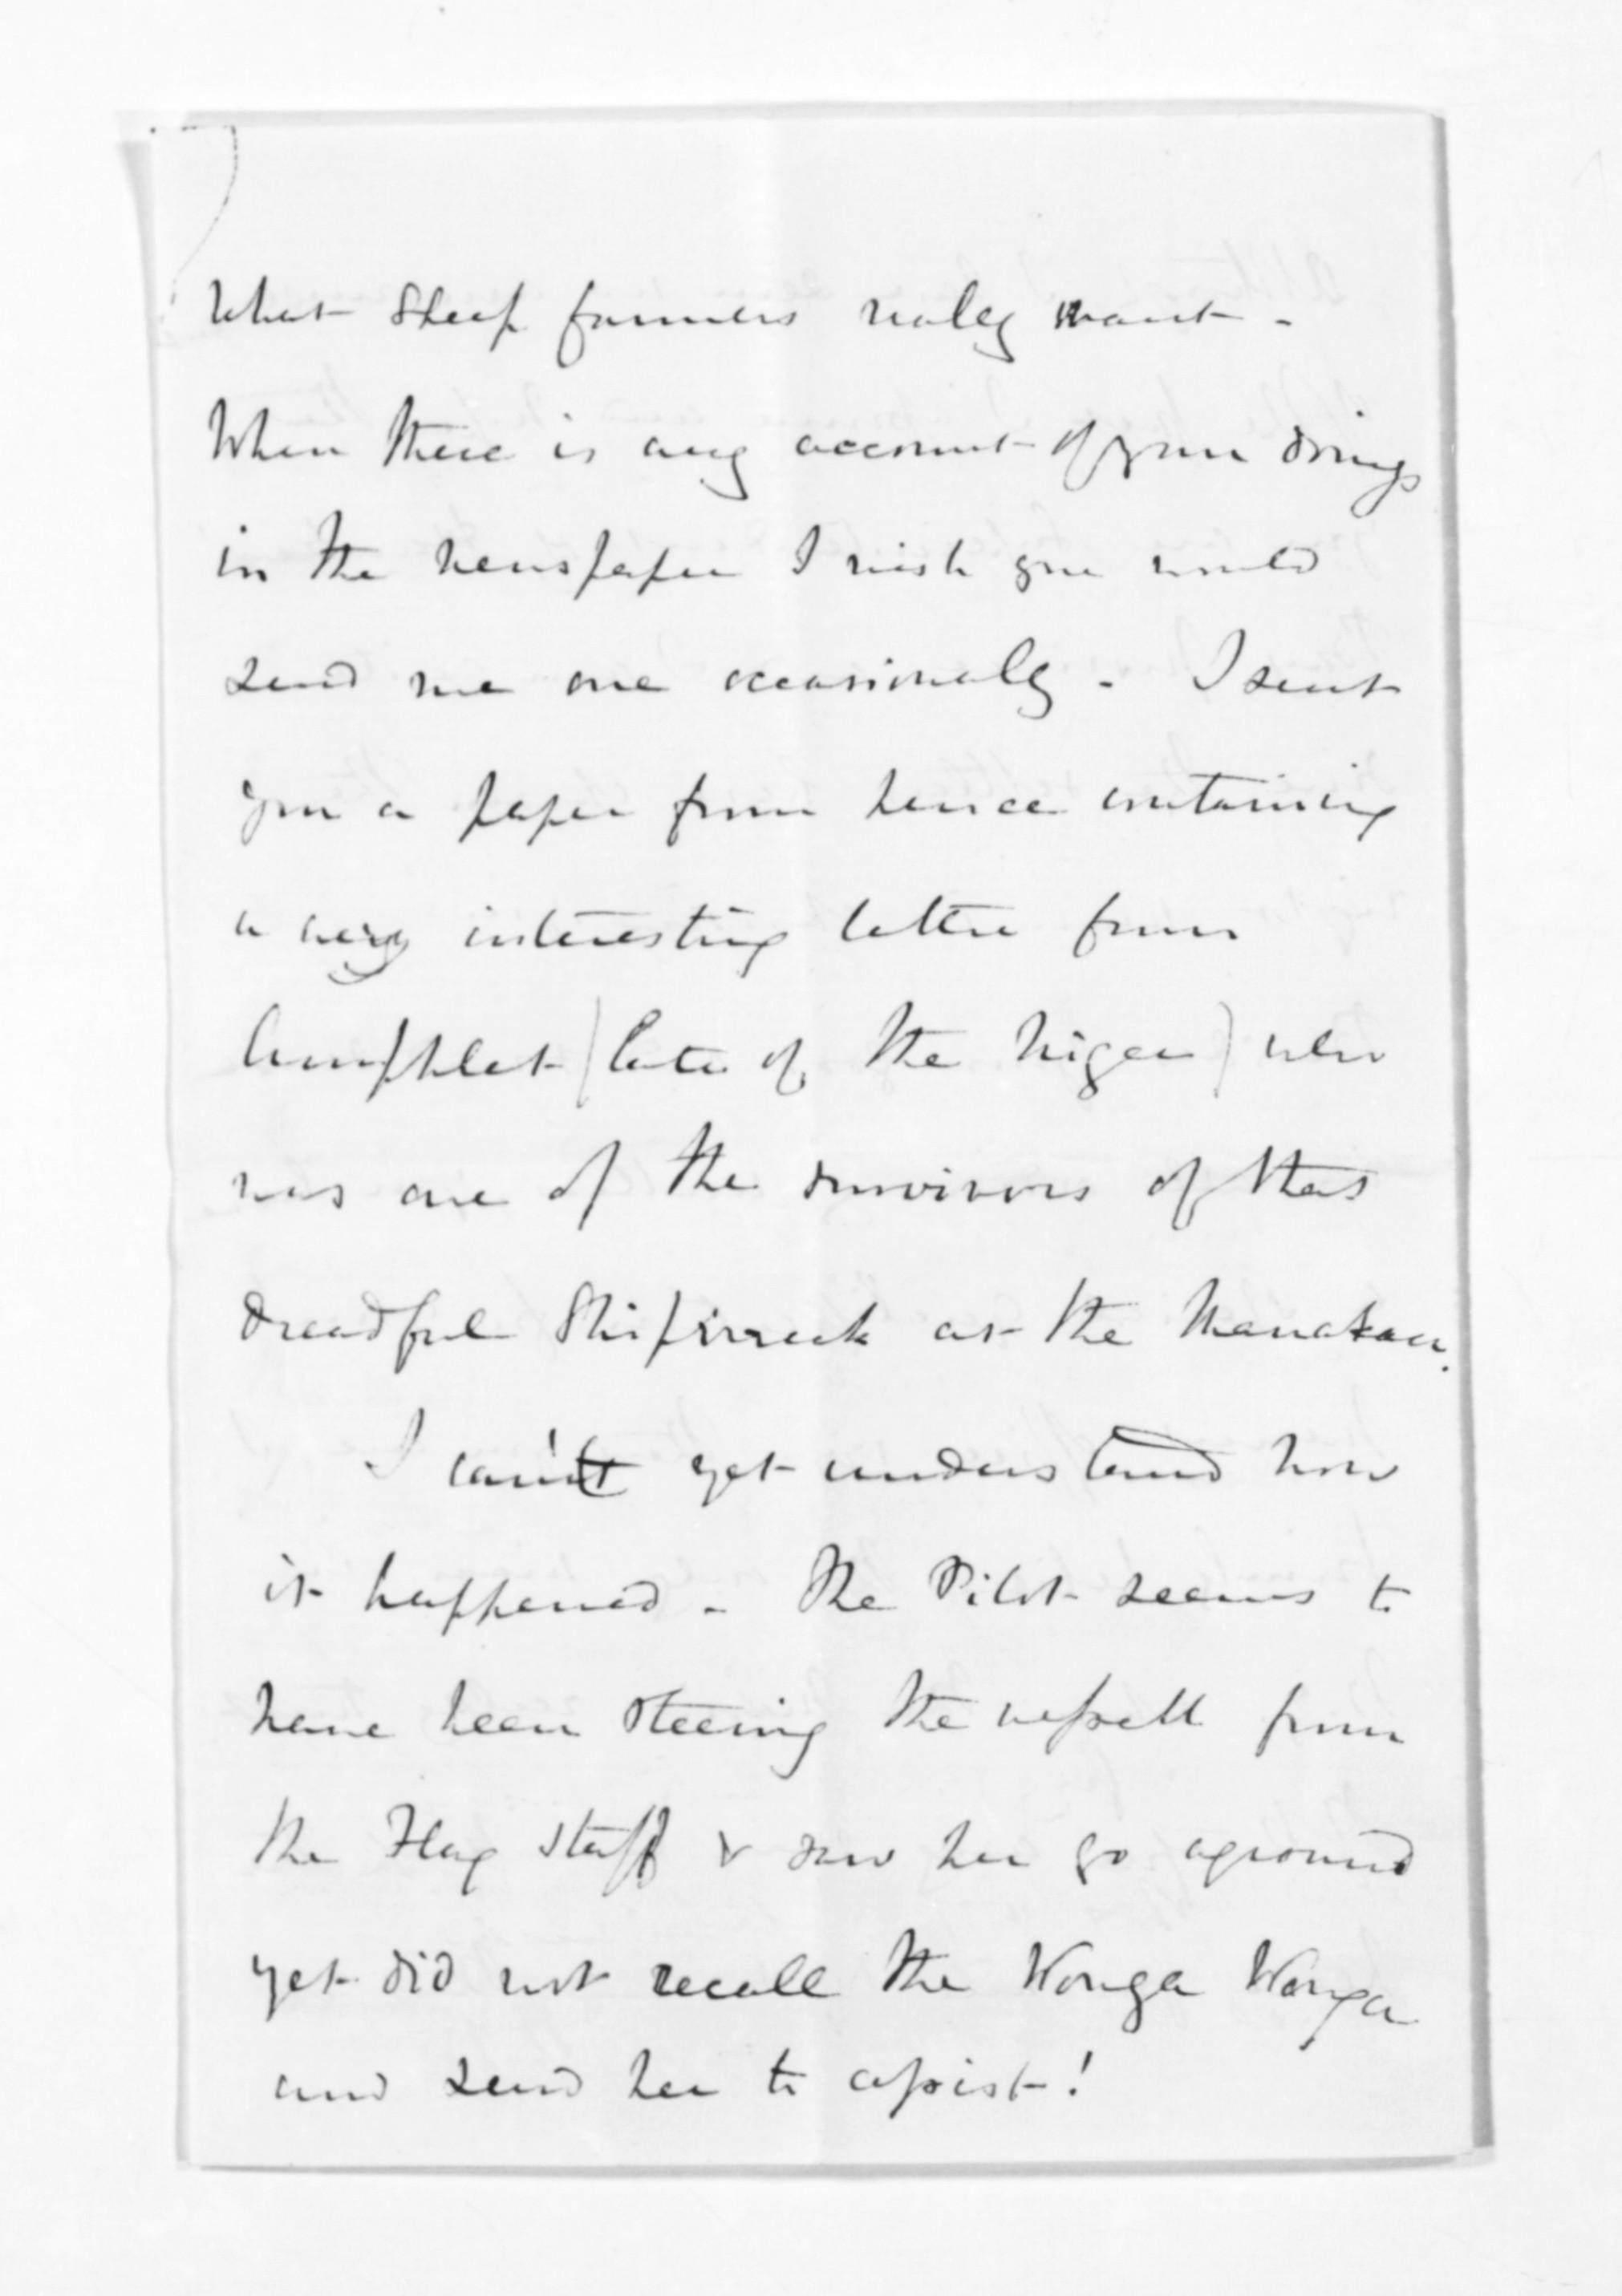 What Sheep farmers realy want -
When there is any account of your doings
in the newspaper I wish you would
send me one occasionaly - I sent
you a paper from hence containing
a very interesting letter from
Amphlet (late of the Niger) who
was one of the survivors of that
dreadful Shipwreck at the Manakau.
I can't yet understand how
it happened - The Pilot seems to
have been steering the vessell from
the Flag Staff & saw her go aground
yet did not recall the Wonga Wonga
and send her to assist!